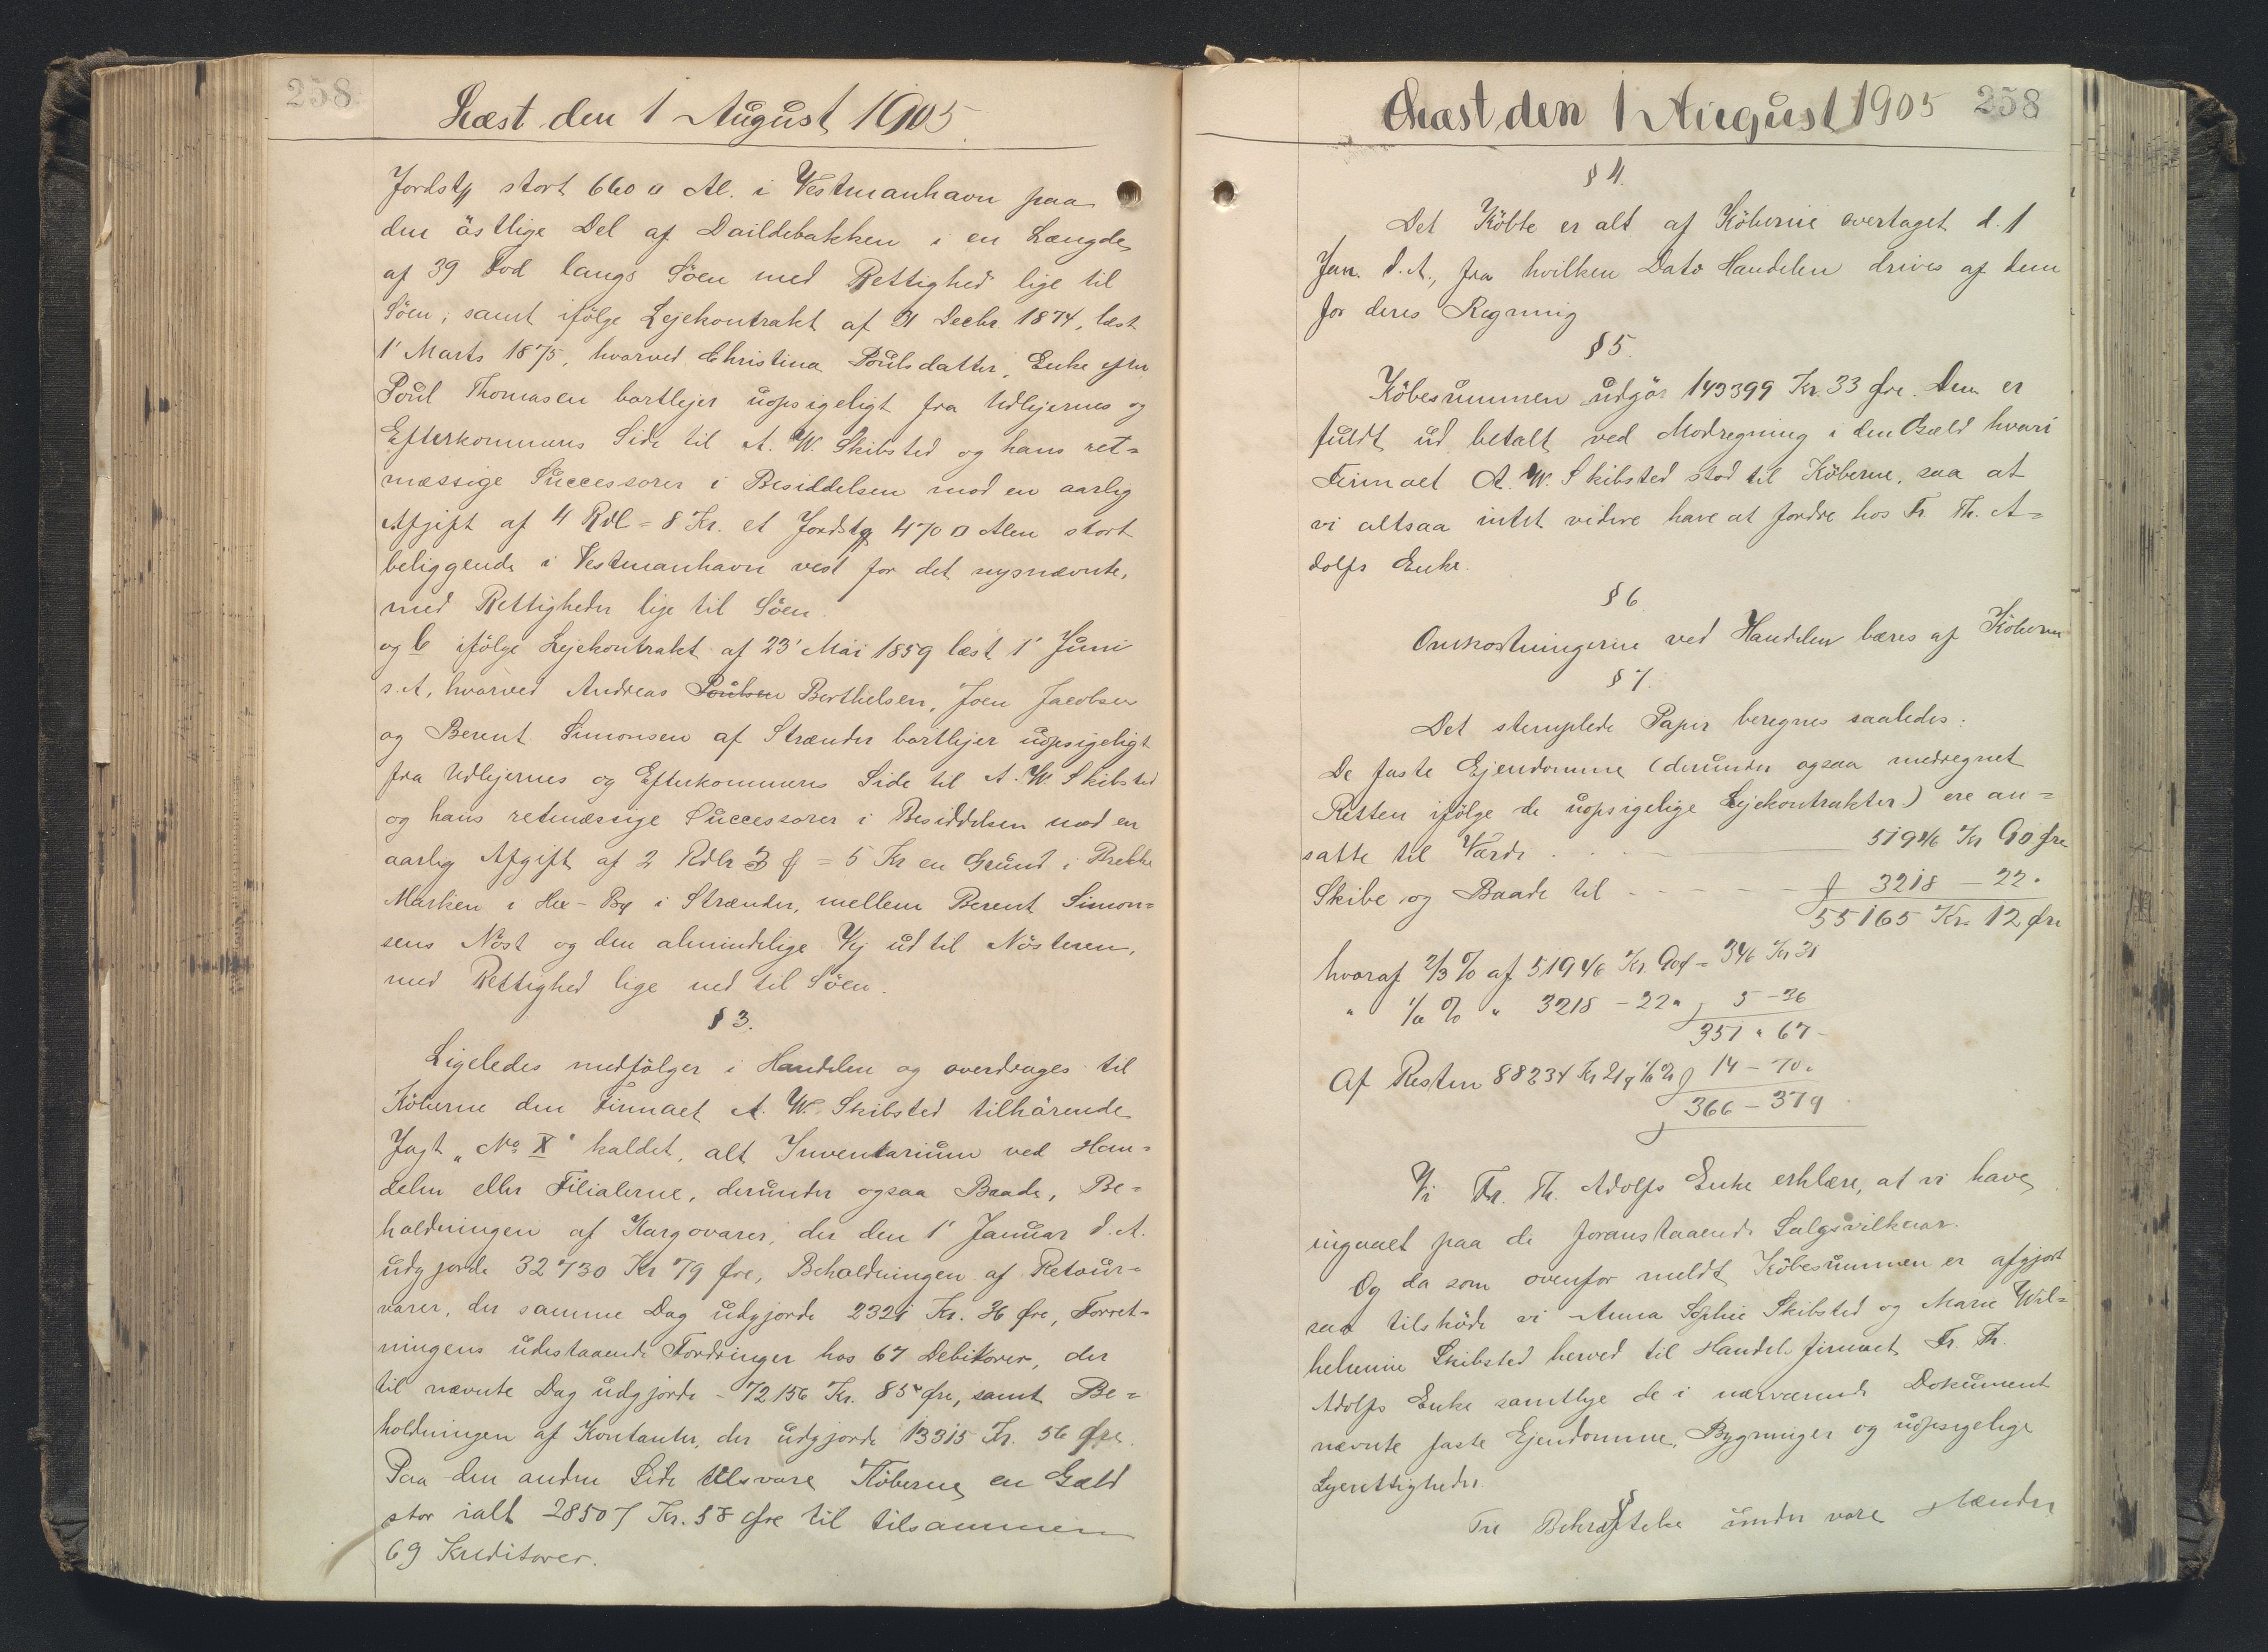 258
Læst den 1 August 1905.
Jordstk stort 660 □ Al. i Vestmanhavn paa
den östlige Del af Daildebakken i en Længde
af 39 Fod langs Söen med Rettighed lige til
Söen; samt ifölge Lejekontrakt af 21 Decbr. 1874, læst
1' Marts 1875, hvorved Christina Poulsdatter, Enke efter
Poul Thomasen bortlejer uopsigeligt fra Udlejernes og
Efterkommeres Side til A. W. Skibsted og hans ret=
mæssige Successorer i Besiddelsen mod en aarlig
Afgift af 4 Rdl = 8 Kr. et Jordstk 470 □ Alen stort
beliggende i Vestmanhavn vest for det nysnævnte,
med Rettigheder lige til Söen.
og b ifölge Lejekontrakt af 23' Mai 1859 læst 1' Juni
s. A, hvorved Andreas Poulsen Berthelsen, Joen Jacobsen
og Berent Simonsen af Strænder bortlejer uopsigeligt
fra Udlejernes og Efterkommeres Side til A. W. Skibsted
og hans retmæssige Successorer i Besiddelsen mod en
aarlig Afgift af 2 Rdlr 3 ₰ = 5 Kr en Grund i
Marken i By i Strænder, mellem Berent Simon=
sens Nöst og den almindelige Vej ud til Nösteren,
med Rettighed lige ned til Söen.
§ 3.
Ligeledes medfölger i Handelen og overdrages til
Köberne den Firmaet A. W. Skibsted tilhörende
Jagt „No X" kaldet, alt Inventarium ved Han=
delen eller Filialerne, derunder ogsaa Baade, Be=
holdningen af Kargovarer, der den 1' Januar d. A.
udgjorde 32730 Kr 79 Øre, Beholdningen af Retour=
varer, der samme Dag udgjorde 2321 Kr. 36 Øre, Forret=
ningens udestaaende Fordringer hos 67 Debitorer, der
til nævnte Dag udgjorde - 72156 Kr. 85 Øre, samt Be=
holdningen af Kontanter, der udgjorde 13315 Kr. 56 Øre.
Paa den anden Side tilsvare Köberne en Gæld
stor ialt 28507 Kr. 58 Øre til tilsammen
69 Kreditorer.
Læst den 1 August 1905
258
§ 4.
Det Köbte er alt af Köberne overtaget d. 1
Jan. d. A., fra hvilken Dato Handelen drives af dem
for deres Regning
§ 5.
Köbesummen udgör 143399 Kr. 33 Øre. Den er
fuldt ud betalt ved Modregning i den Gæld hvori
Firmaet A. W. Skibsted stod til Köberne, saa at
vi altsaa intet videre have at fordre hos Fr. Th. A=
dolfs Enke.
§ 6.
Omkostningerne ved Handelen bæres af Köberne
§ 7.
Det stemplede Papir beregnes saaledes:
De faste Ejendomme (derunder ogsaa medregnet
Retten ifölge de uopsigelige Lejekontrakter) ere an=
satte til Værdi . . . 51946 Kr 90 Øre
Skibe og Baade til - - - - 3218 — 22 "
55165 Kr. 12 Øre
hvoraf 2/3 % af 51946 Kr. 90 Ø = 346 Kr 31
" 1/6 % " 3218 - 22 " 5 - 36
351 " 67 -
Af Resten 88234 Kr 21 Ø 1/60 % 14 - 70.
366 - 37 Ø
Vi Fr. Th. Adolfs Enke erklære, at vi have
indgaaet paa de foranstaaende Salgsvilkaar.
Og da som ovenfor meldt Köbesummen er afgjort
saa tilsköde vi Anna Sophie Skibsted og Marie Wil=
helmine Skibsted herved til Handelsfirmaet Fr. Th.
Adolfs Enke samtlige de i nærværende Dokument
nævnte faste Ejendomme, Bygninger og uopsigelige
Lejerettigheder.
Til Bekræftelse under vore Hænder